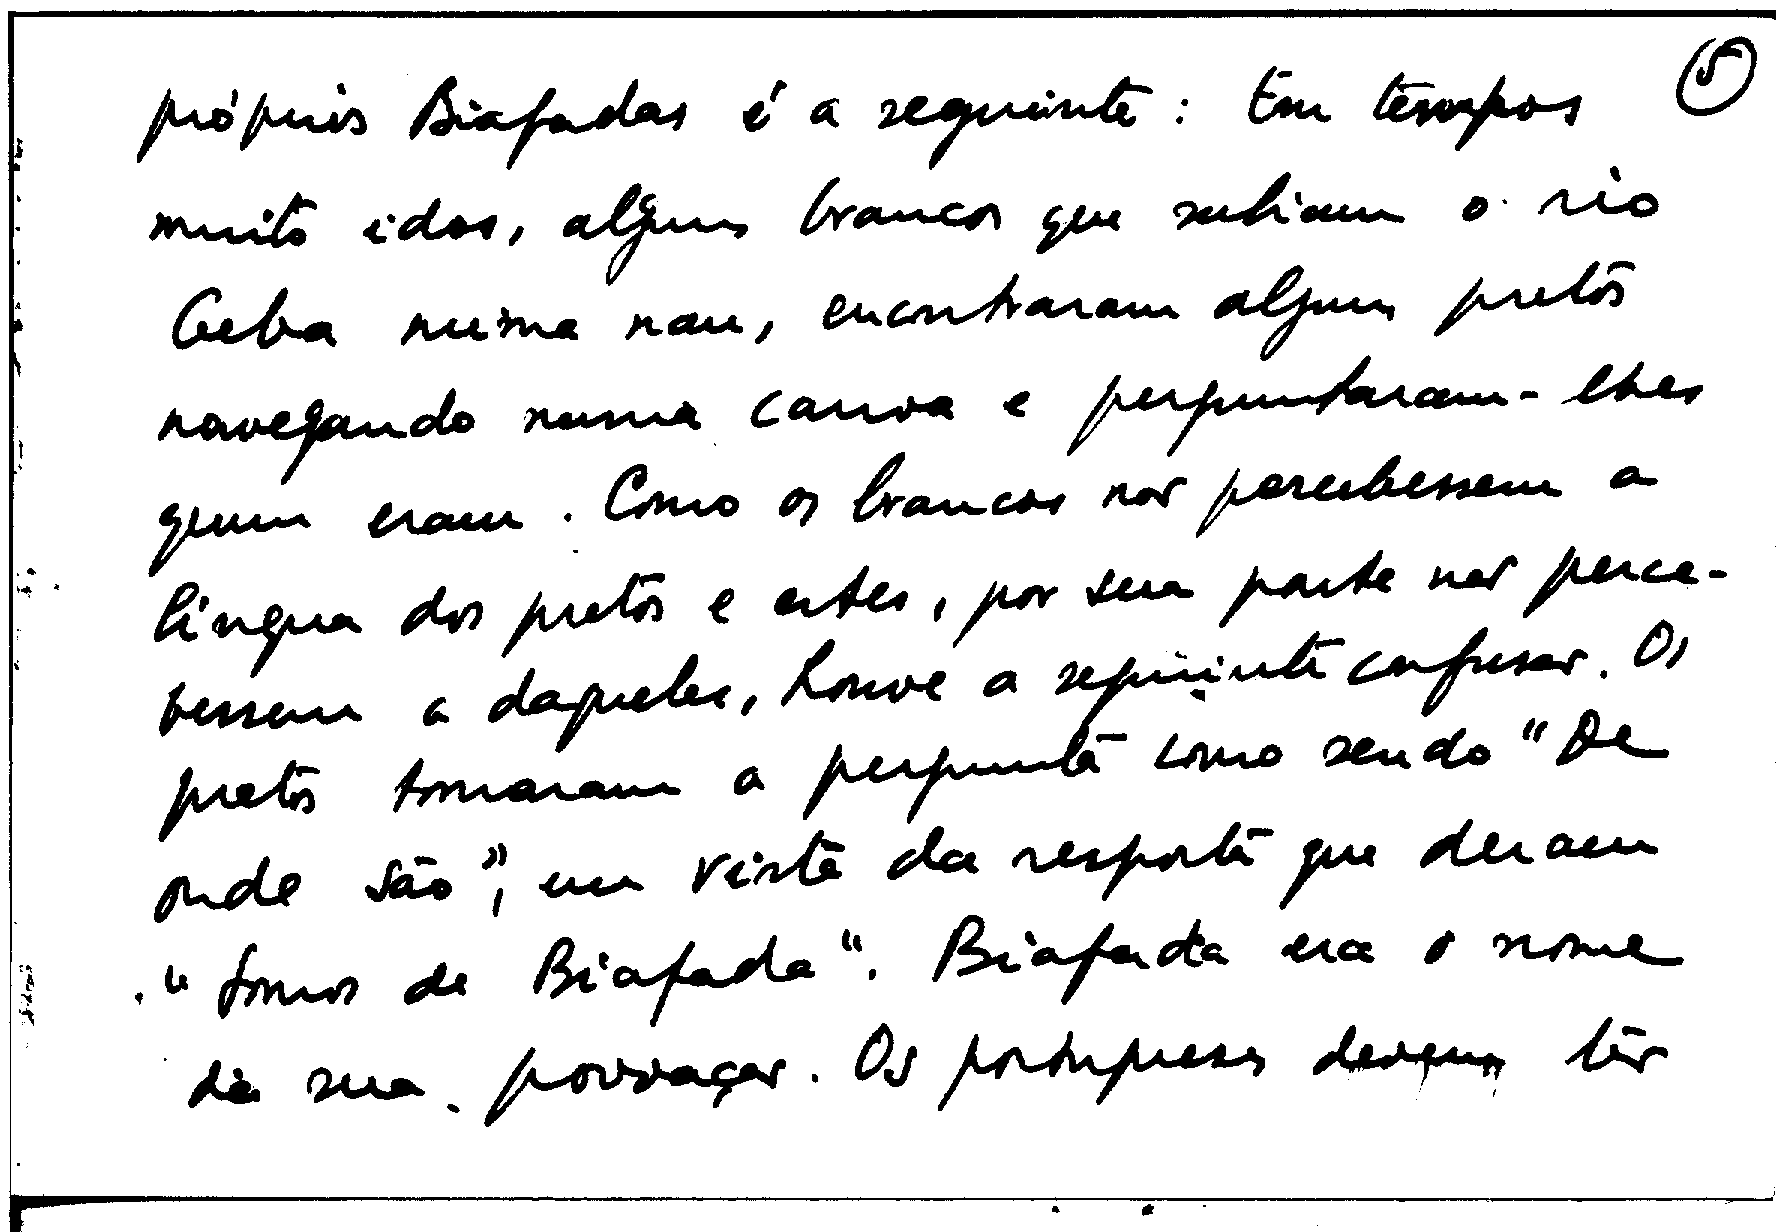 5
próprios Biafadas é a seguinte: Em tempos
muito idos, alguns brancos que subiam o rio
Geba numa nau, encontraram alguns pretos
navegando numa canoa e perguntaram-lhes
quem eram. Como os brancos não percebessem a
língua dos pretos e estes, por sua parte não perce-
bessem a daqueles, houve a seguinte confusão. Os
pretos tomaram a pergunta como sendo "De
onde são", em vista da resposta que deram
"somos de Biafada". Biafada era o nome
da sua povoação. Os portugueses devem ter